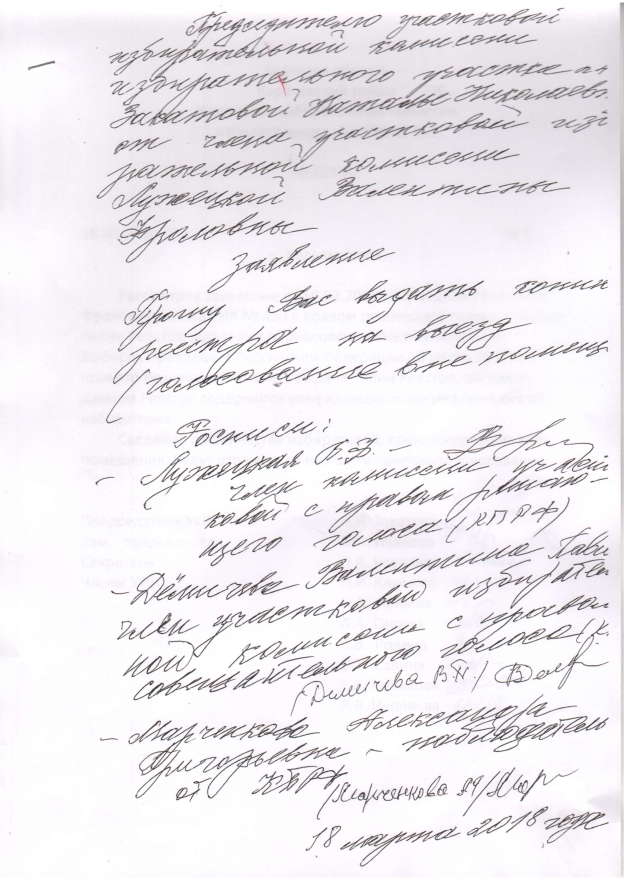 Председателю участковой
избирательной комиссии
избирательного участка
Закатовой Натальи Николаев
от члена участковой из
рательной комиссии
Лужецкой Валентины
Фроловны
Заявление
Прошу Вас выдать копии
реестра на выезд
(голосование вне помещ
Росписи:
- Лужецкая В.Ф.
член комиссии участ
ковой с правом решаю-
щего голоса (КПРФ)
- Дёмичева Валентина Павл
член участковой избирател
ной комиссии с правом
совещательного голоса (к.
(Демичева В.П.)
- Марченкова Александра
Григорьевна - наблюдатель
от КПРФ
(Марченкова АГ)
18 марта 2018 года